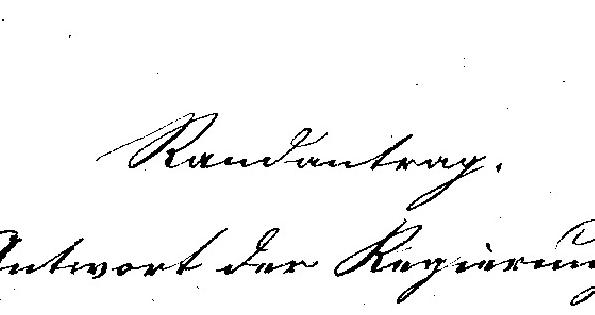 Randantrag.
Antwort der Regierung